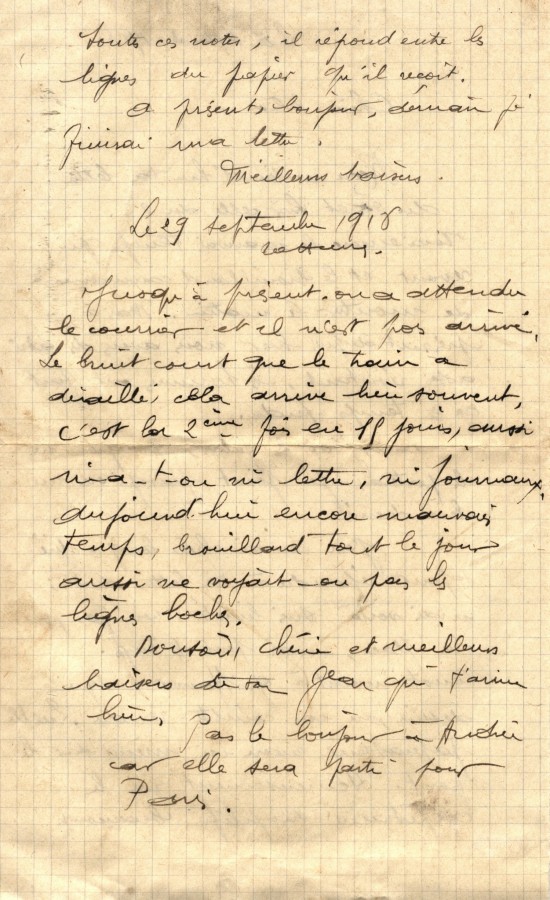 toutes ces notes, il répond entre les
lignes du papier qu'il reçoit.
a présent, bonjour, demain je
finirai ma lettre.
Meilleurs baisers.
Le 29 septembre 1916
Jusqu'à présent on a attendu
le courrier et il n'est pas arrivé,
Le bruit court que le train a
déraillé, cela arrive bien souvent,
c'est la 2ème fois en 15 jours, aussi
n'a-t-on ni lettre, ni journaux.
aujourd'hui encore mauvais
temps, brouillard tout le jour
aussi ne voyait-on pas les
lignes boches.
Bonsoir, chérie et meilleurs
baisers de ton Jean qui t'aime
bien,
Pas le bonjour à Andrée
car elle sera parti pour
Paris.